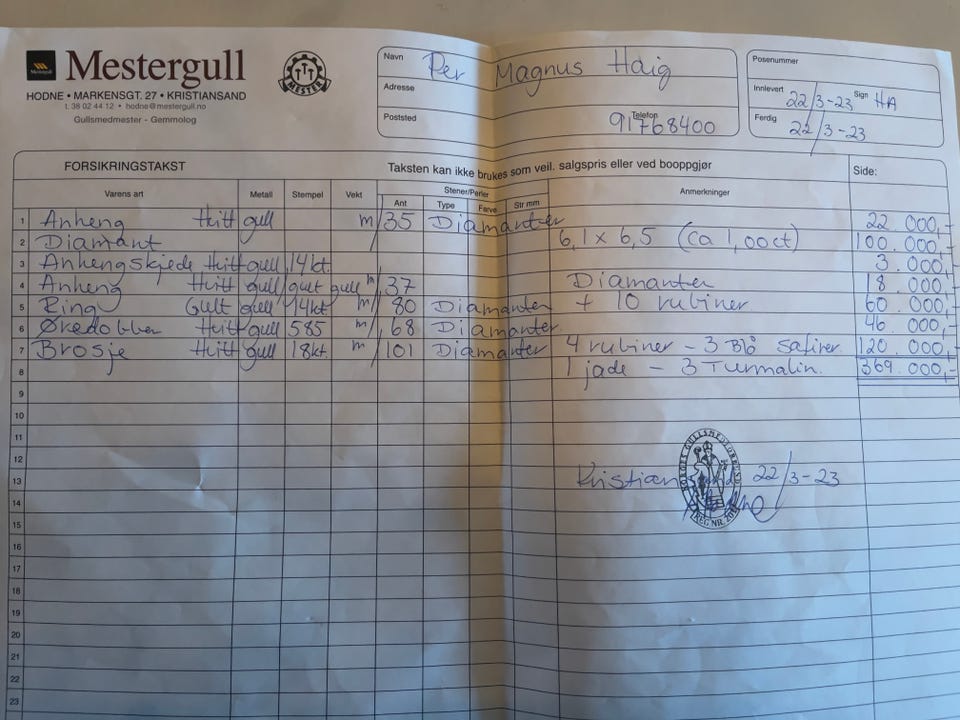 Mestergull
HODNE • MARKENSGT. 27 • KRISTIANSAND
t. 38 02 44 12 • hodne@mestergull.no
Gullsmedmester - Gemmolog
Mestergull
TTT
MESTER
Navn Per Magnus Haig
Adresse
Poststed
Telefon 91768400
Posenummer
Innlevert 22/3-23 Sign HA
Ferdig 22/3-23
FORSIKRINGSTAKST Taksten kan ikke brukes som veil. salgspris eller ved booppgjør Side:
Varens art Metall Stempel Vekt Stener/Perler Anmerkninger
Ant Type Farve Str mm
1 Anheng Hvitt gull m/35 Diamanter 22.000,-
2 Diamant 6,1 x 6,5 (ca 1,00ct) 100.000,-
3 Anhengskjede Hvitt gull 14kt. 3.000,-
4 Anheng Hvitt gull/gult gull m/37 Diamanter 18.000,-
5 Ring Gult gull 14kt m/80 Diamanter + 10 rubiner 60.000,-
6 Øredobber Hvitt gull 585 m/68 Diamanter 46.000,-
7 Brosje Hvitt gull 18kt. m/101 Diamanter 4 rubiner - 3 Blå safirer 120.000,-
8 1 jade - 3 Turmalin. 369.000,-
9
10
11
12
13 Kristiansand 22/3-23
14
15
16
17
18
19
20
21
22
23